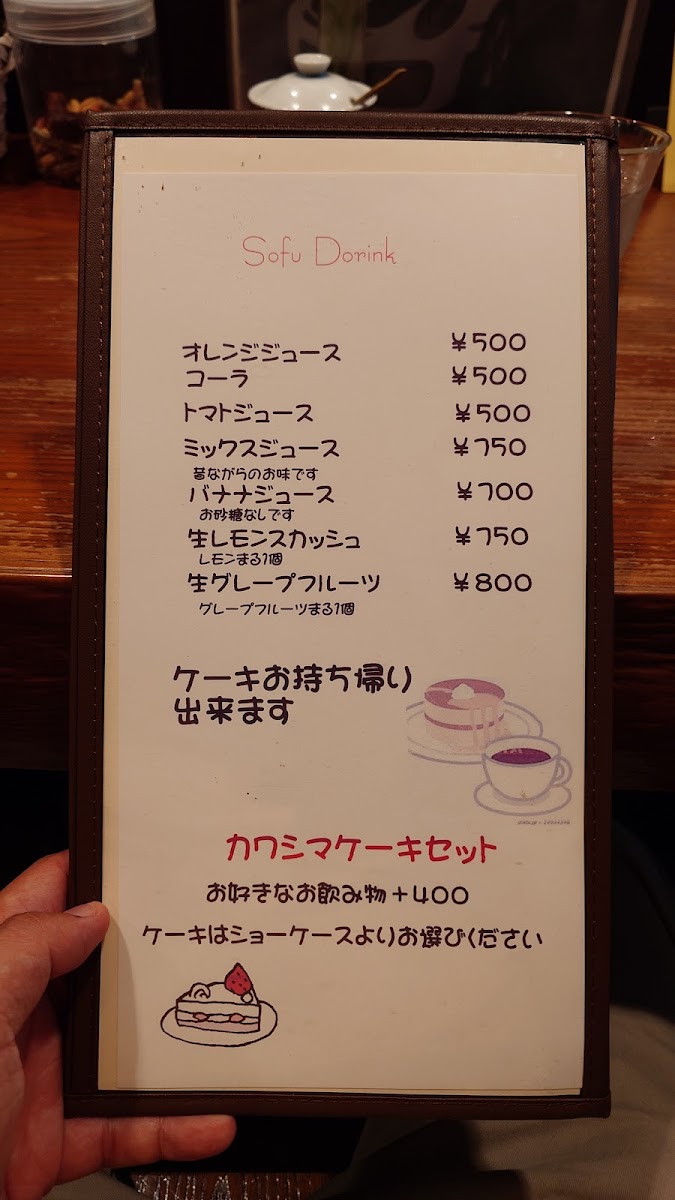 Sofu Dorink
オレンジジュース ¥500
コーラ ¥500
トマトジュース ¥500
ミックスジュース ¥750
昔ながらのお味です
バナナジュース ¥700
お砂糖なしです
生レモンスカッシュ ¥750
レモンまる1個
生グレープフルーツ ¥800
グレープフルーツまる1個
ケーキお持ち帰り
出来ます
カワシマケーキセット
お好きなお飲み物+400
ケーキはショーケースよりお選びください